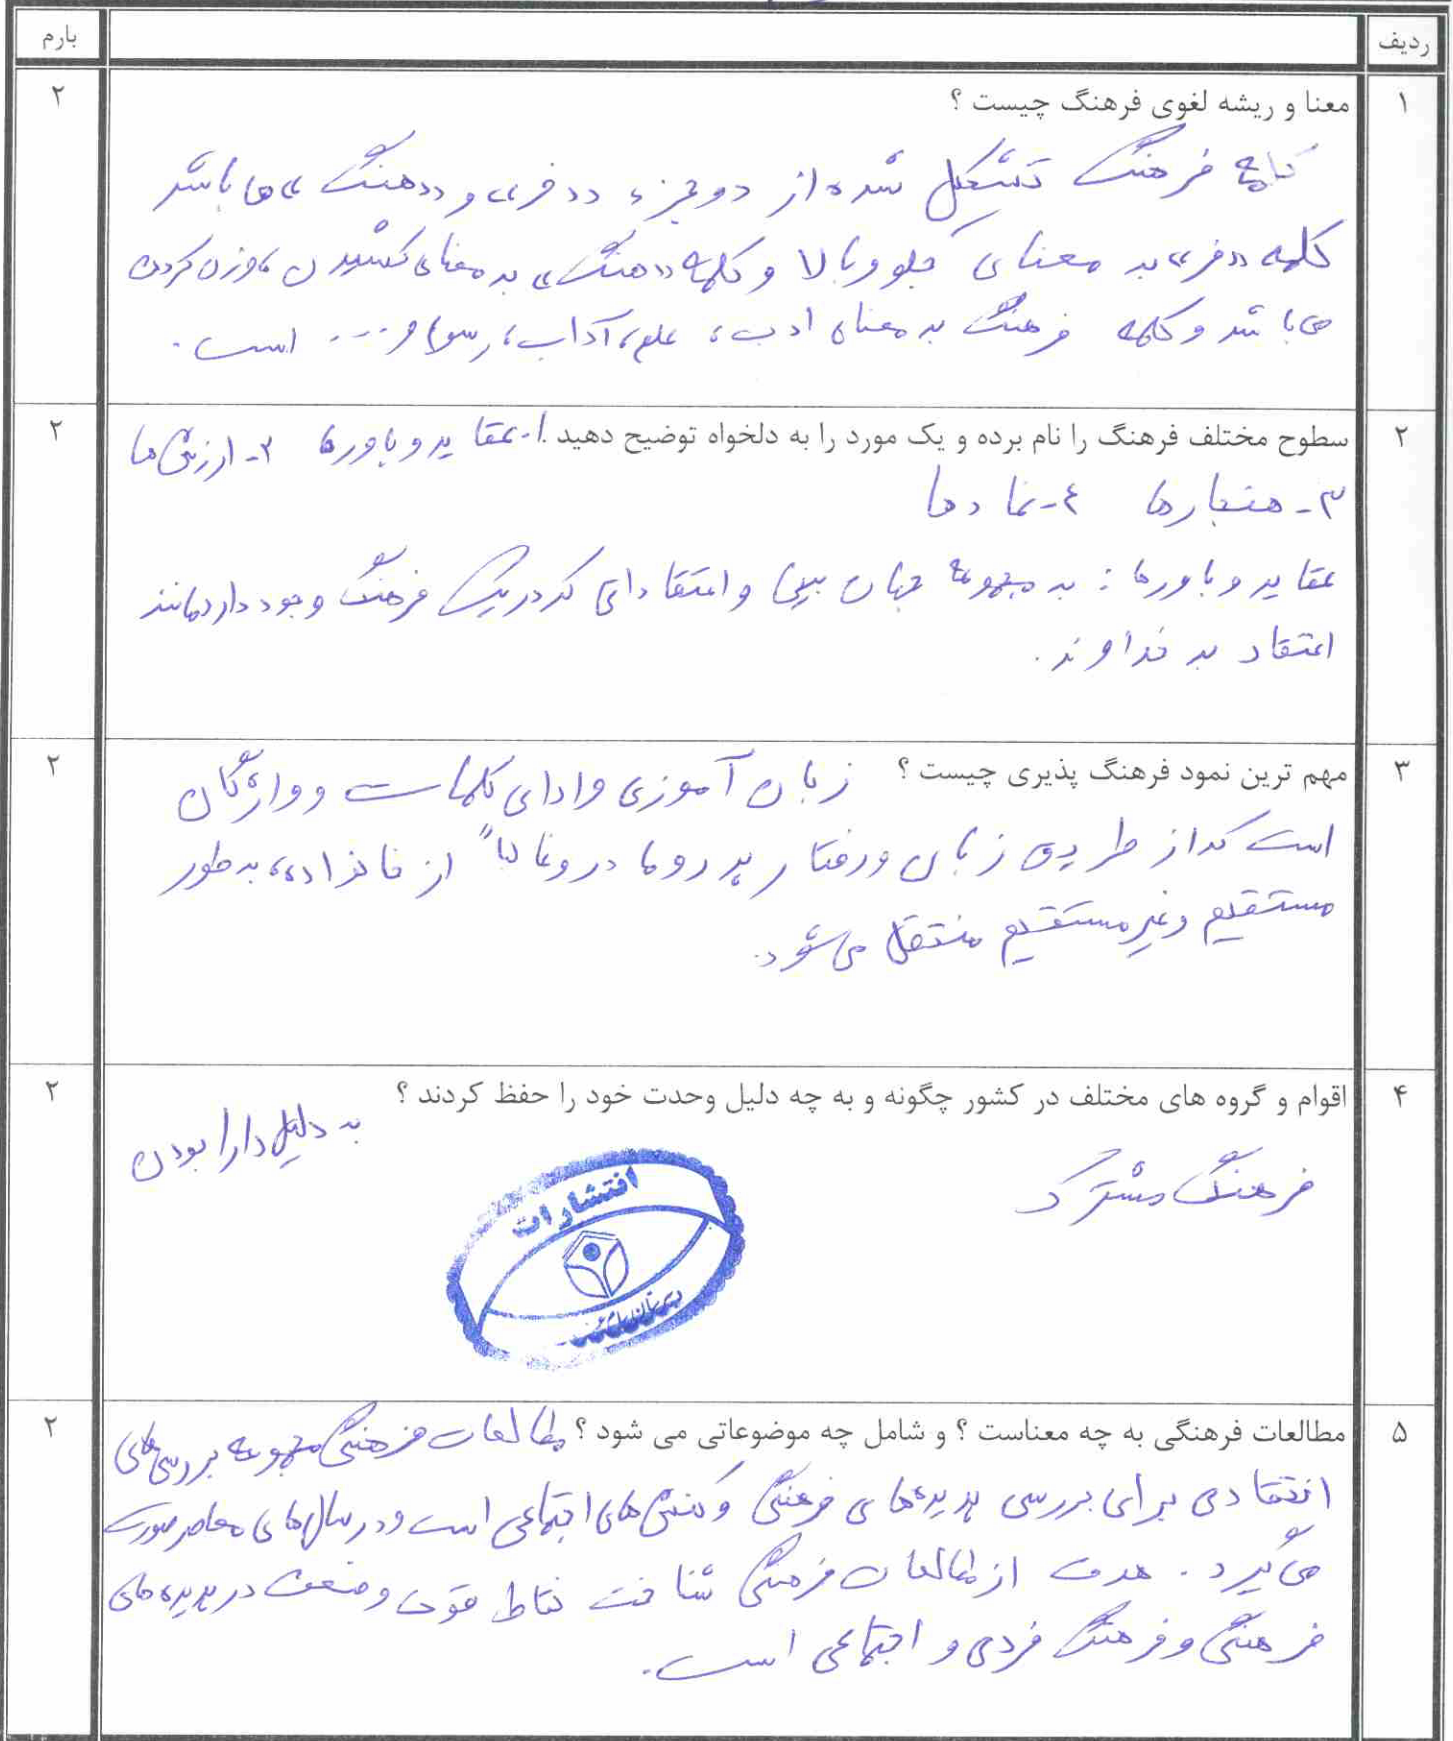 ردیف بارم
۱ معنا و ریشه لغوی فرهنگ چیست ؟ ۲
کلمه فرهنگ تشکیل شده از دو جزء «فر» و «هنگ» می باشد
کلمه «فر» به معنای جلو و بالا و کلمه «هنگ» به معنای کشیدن، وزن کردن
می باشد و کلمه فرهنگ به معنای ادب، علم، آداب، رسوم و .... است.
۲ سطوح مختلف فرهنگ را نام برده و یک مورد را به دلخواه توضیح دهید . ۱- عقاید و باورها ۲- ارزش ها ۲
۳- هنجارها ۴- نمادها
عقاید و باورها : به مجموعه جهان بینی و اعتقاداتی که در یک فرهنگ وجود دارد مانند
اعتقاد به خداوند.
۳ مهم ترین نمود فرهنگ پذیری چیست ؟ زبان آموزی و ادای کلمات و واژگان ۲
است که از طریق زبان و رفتار پدر و مادر و غالباً از خانواده، به طور
مستقیم و غیر مستقیم منتقل می شود.
۴ اقوام و گروه های مختلف در کشور چگونه و به چه دلیل وحدت خود را حفظ کردند ؟ به دلیل دارا بودن ۲
فرهنگ مشترک
انتشارات
۵ مطالعات فرهنگی به چه معناست ؟ و شامل چه موضوعاتی می شود ؟ مطالعات فرهنگی مجموعه بررسی های ۲
انتقادی برای بررسی پدیده های فرهنگی و کنش های اجتماعی است و در سال های معاصر صورت
می گیرد. هدف از مطالعات فرهنگی شناخت نقاط قوت و ضعف در پدیده های
فرهنگی و فرهنگ فردی و اجتماعی است.